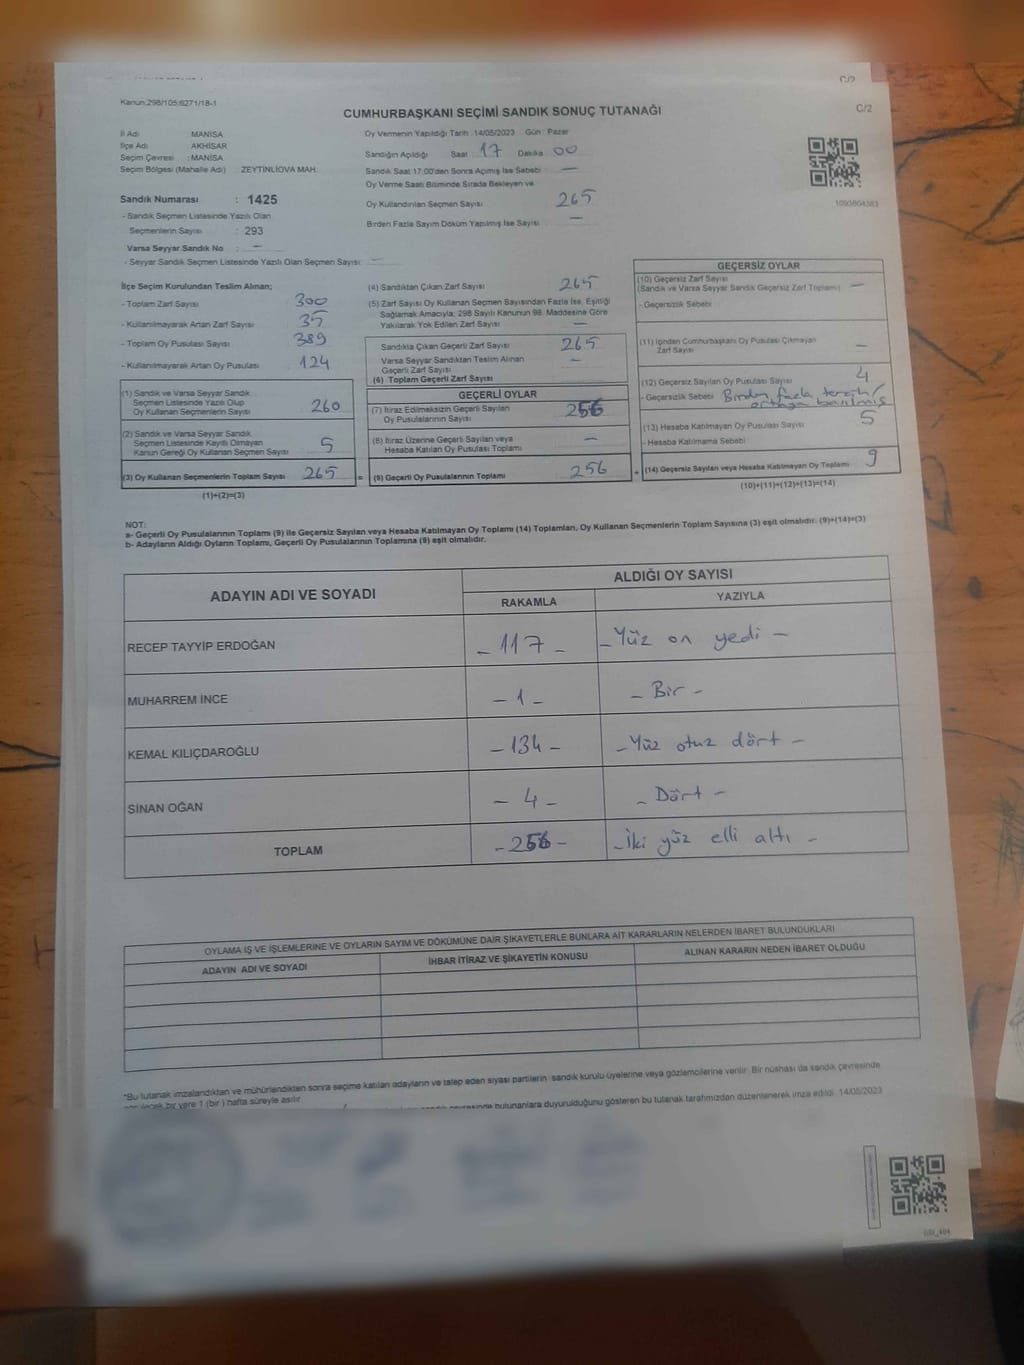 C/2
C/2
Kanun:298/105;6271/18-1
CUMHURBAŞKANI SEÇİMİ SANDIK SONUÇ TUTANAĞI
İl Adı : MANİSA
İlçe Adı : AKHİSAR
Seçim Çevresi : MANİSA
Seçim Bölgesi (Mahalle Adı) ZEYTİNLİOVA MAH.
Sandık Numarası : 1425
- Sandık Seçmen Listesinde Yazılı Olan
Seçmenlerin Sayısı : 293
Varsa Seyyar Sandık No : —
- Seyyar Sandık Seçmen Listesinde Yazılı Olan Seçmen Sayısı: —
Oy Vermenin Yapıldığı Tarih :14/05/2023 Gün : Pazar
Sandığın Açıldığı Saat 17 Dakika 00
Sandık Saat 17:00'den Sonra Açılmış İse Sebebi : —
Oy Verme Saati Bitiminde Sırada Bekleyen ve
Oy Kullandırılan Seçmen Sayısı : 265
Birden Fazla Sayım Döküm Yapılmış İse Sayısı : —
1093804383
İlçe Seçim Kurulundan Teslim Alınan;
- Toplam Zarf Sayısı : 300
- Kullanılmayarak Artan Zarf Sayısı : 35
- Toplam Oy Pusulası Sayısı : 389
- Kullanılmayarak Artan Oy Pusulası : 124
(1) Sandık ve Varsa Seyyar Sandık
Seçmen Listesinde Yazılı Olup
Oy Kullanan Seçmenlerin Sayısı : 260
(2) Sandık ve Varsa Seyyar Sandık
Seçmen Listesinde Kayıtlı Olmayan
Kanun Gereği Oy Kullanan Seçmen Sayısı : 5
(3) Oy Kullanan Seçmenlerin Toplam Sayısı : 265 =
(1)+(2)=(3)
(4) Sandıktan Çıkan Zarf Sayısı : 265
(5) Zarf Sayısı Oy Kullanan Seçmen Sayısından Fazla İse, Eşitliği
Sağlamak Amacıyla; 298 Sayılı Kanunun 98. Maddesine Göre
Yakılarak Yok Edilen Zarf Sayısı : —
Sandıkta Çıkan Geçerli Zarf Sayısı : 265
Varsa Seyyar Sandıktan Teslim Alınan
Geçerli Zarf Sayısı : —
(6) Toplam Geçerli Zarf Sayısı :
GEÇERLİ OYLAR
(7) İtiraz Edilmeksizin Geçerli Sayılan
Oy Pusulalarının Sayısı : 256
(8) İtiraz Üzerine Geçerli Sayılan veya
Hesaba Katılan Oy Pusulası Toplamı : —
(9) Geçerli Oy Pusulalarının Toplamı : 256 +
GEÇERSİZ OYLAR
(10) Geçersiz Zarf Sayısı
(Sandık ve Varsa Seyyar Sandık Geçersiz Zarf Toplamı) : —
- Geçersizlik Sebebi :
(11) İçinden Cumhurbaşkanı Oy Pusulası Çıkmayan
Zarf Sayısı : —
(12) Geçersiz Sayılan Oy Pusulası Sayısı : 4
- Geçersizlik Sebebi : Birden fazla tercih/
ortaya basılmış
(13) Hesaba Katılmayan Oy Pusulası Sayısı : 5
- Hesaba Katılmama Sebebi :
(14) Geçersiz Sayılan veya Hesaba Katılmayan Oy Toplamı : 9
(10)+(11)+(12)+(13)=(14)
NOT:
a- Geçerli Oy Pusulalarının Toplamı (9) ile Geçersiz Sayılan veya Hesaba Katılmayan Oy Toplamı (14) Toplamları, Oy Kullanan Seçmenlerin Toplam Sayısına (3) eşit olmalıdır: (9)+(14)=(3)
b- Adayların Aldığı Oyların Toplamı, Geçerli Oy Pusulalarının Toplamına (9) eşit olmalıdır.
ADAYIN ADI VE SOYADI ALDIĞI OY SAYISI
RAKAMLA YAZIYLA
RECEP TAYYİP ERDOĞAN - 117 - - Yüz on yedi -
MUHARREM İNCE - 1 - - Bir -
KEMAL KILIÇDAROĞLU - 134 - - Yüz otuz dört -
SİNAN OĞAN - 4 - - Dört -
TOPLAM - 256 - - İki yüz elli altı -
OYLAMA İŞ VE İŞLEMLERİNE VE OYLARIN SAYIM VE DÖKÜMÜNE DAİR ŞİKAYETLERLE BUNLARA AİT KARARLARIN NELERDEN İBARET BULUNDUKLARI
ADAYIN ADI VE SOYADI İHBAR İTİRAZ VE ŞİKAYETİN KONUSU ALINAN KARARIN NEDEN İBARET OLDUĞU
*Bu tutanak imzalandıktan ve mühürlendikten sonra seçime katılan adayların ve talep eden siyasi partilerin sandık kurulu üyelerine veya gözlemcilerine verilir. Bir nüshası da sandık çevresinde
bir yere 1 (bir) hafta süreyle asılır.
bulunanlara duyurulduğunu gösteren bu tutanak tarafımızdan düzenlenerek imza edildi. 14/05/2023